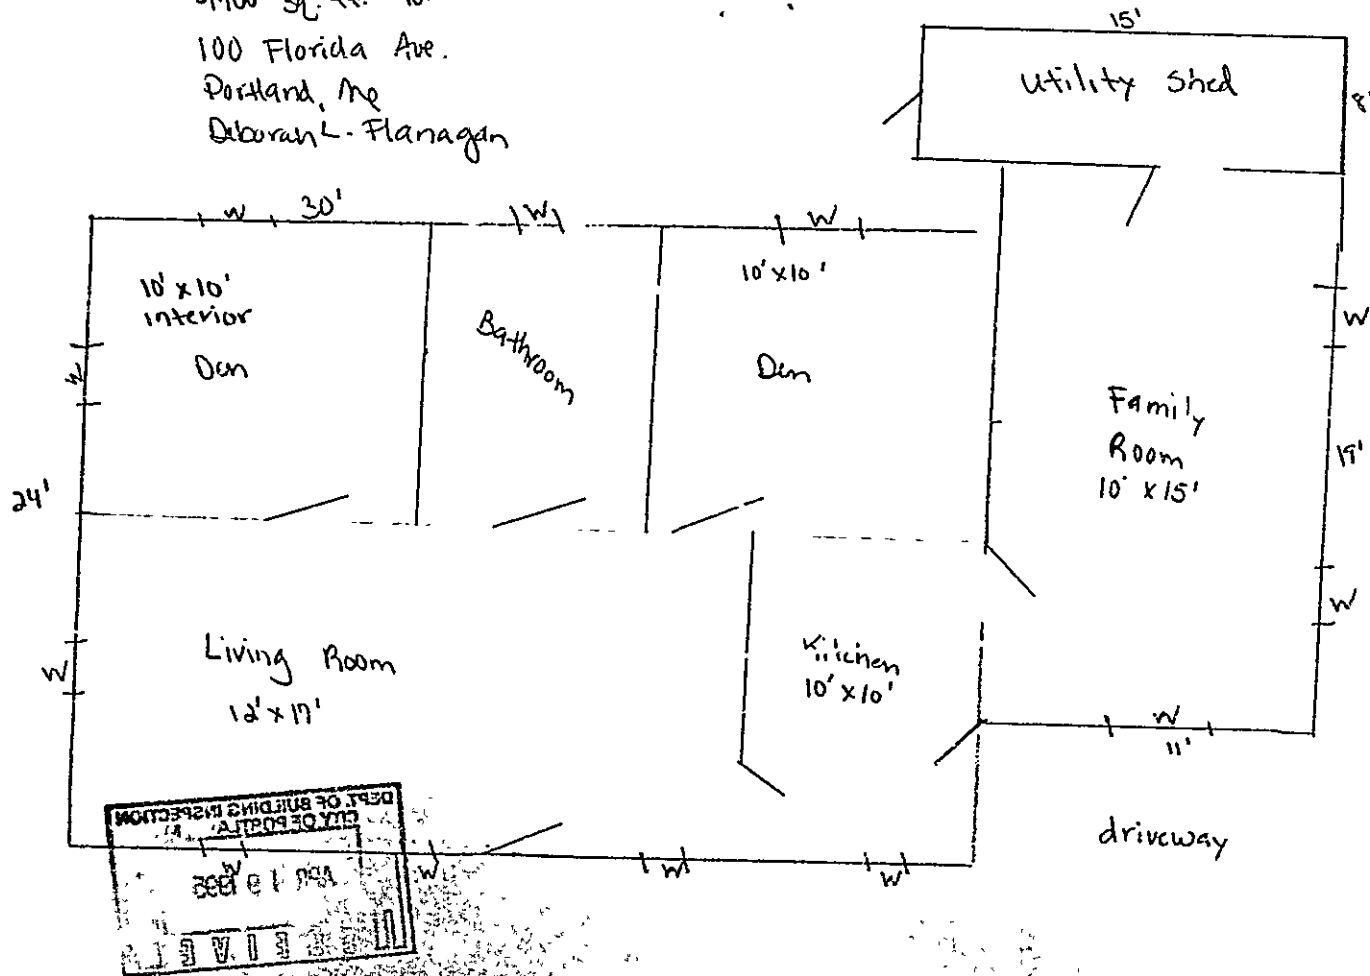 sq. ft.
100 Florida Ave.
Portland, Me
Deborah L. Flanagan
15'
Utility Shed
8'
W 30' W W
10' x 10'
interior
Den
Bathroom
10' x 10'
Den
W
W
Family
Room
10' x 15'
19'
24'
W
W
Living Room
12' x 17'
Kitchen
10' x 10'
W
11'
driveway
DEPT. OF BUILDING INSPECTION
CITY OF PORTLA
APR 19 1995
W W W W